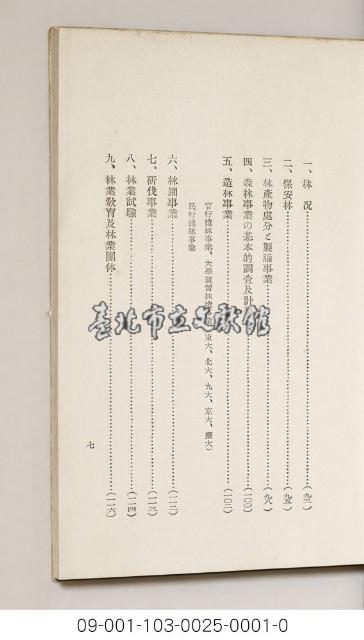 一、林況……(九三)
二、保安林……(九五)
三、林產物處分と製腦事業……(九八)
四、森林事業の基本的調査及計……(一〇〇)
五、造林事業……(一〇二)
官行造林事業、大學演習林 東大、北大、九大、京大、臺大)
民行造林事業
六、林圃事業……(一一二)
七、斫伐事業……(一一三)
八、林業試驗……(一一四)
九、林業教育及林業團体……(一一六)
七
臺北市立文獻館
09-001-103-0025-0001-0